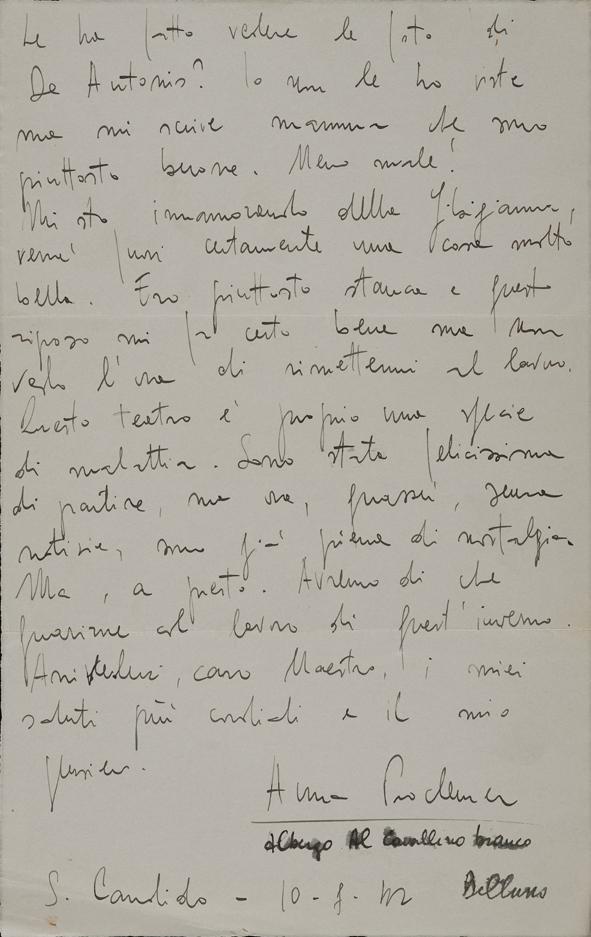 Le ha fatto vedere le foto di
De Antonis? Io non le ho viste
ma mi scrive mamma che sono
piuttosto buone. Meno male!
Mi sto innamorando della
verrà fuori certamente una cosa molto
bella. Ero piuttosto stanca e questo
riposo mi fa certo bene ma non
vedo l'ora di rimettermi al lavoro.
Questo teatro è proprio una specie
di malattia. Sono stata felicissima
di partire, ma ora, quassù, senza
notizie, sono già piena di nostalgia.
Ma, a presto. Avremo di che
guarirne col lavoro di quest'inverno.
Arrivederci, caro Maestro, i miei
saluti più cordiali e il mio
pensiero.
Anna Proclemer
albergo Al Cavallino bianco
S. Candido - 10 - 8 - 42 Belluno